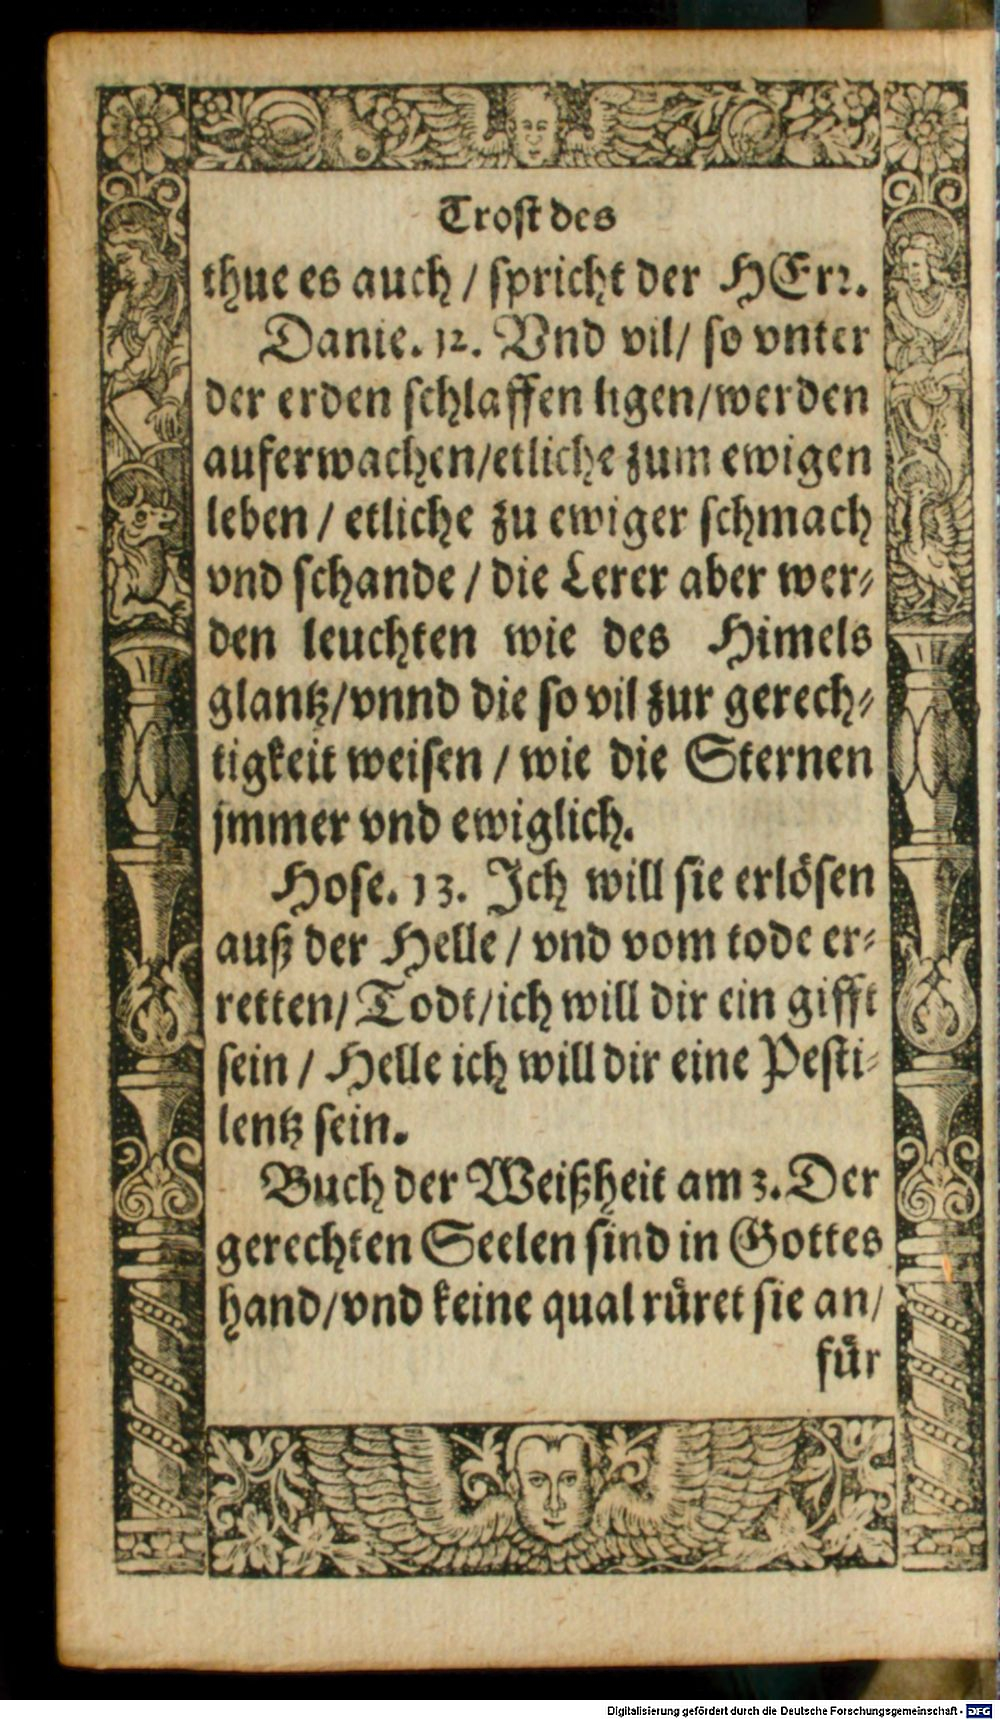 Trost des
thue es auch / spricht der HErr.
Danie. 12. Vnd vil / so vnter
der erden schlaffen ligen / werden
auferwachen / etliche zum ewigen
leben / etliche zu ewiger schmach
vnd schande / die Lerer aber wer⸗
den leuchten wie des Himels
glantz / vnnd die so vil zur gerech⸗
tigkeit weisen / wie die Sternen
jmmer vnd ewiglich.
Hose. 13. Ich will sie erlösen
auß der Helle / vnd vom tode er⸗
retten / Todt / ich will dir ein gifft
sein / Helle ich will dir eine Pesti⸗
lentz sein.
Buch der Weißheit am 3. Der
gerechten Seelen sind in Gottes
hand / vnd keine qual rüret sie an /
für
Digitalisierung gefördert durch die Deutsche Forschungsgemeinschaft - DFG